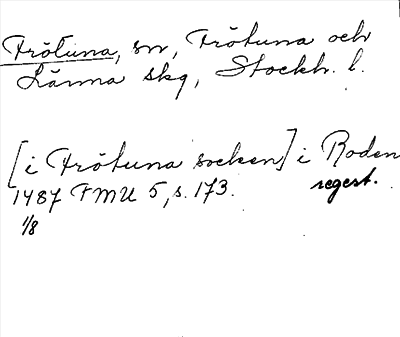 Frötuna, sn, Frötuna och
Länna skg, Stockh. l.
[i Frötuna socken] i Roden
1487 FMU 5, s. 173. regest.
1/8